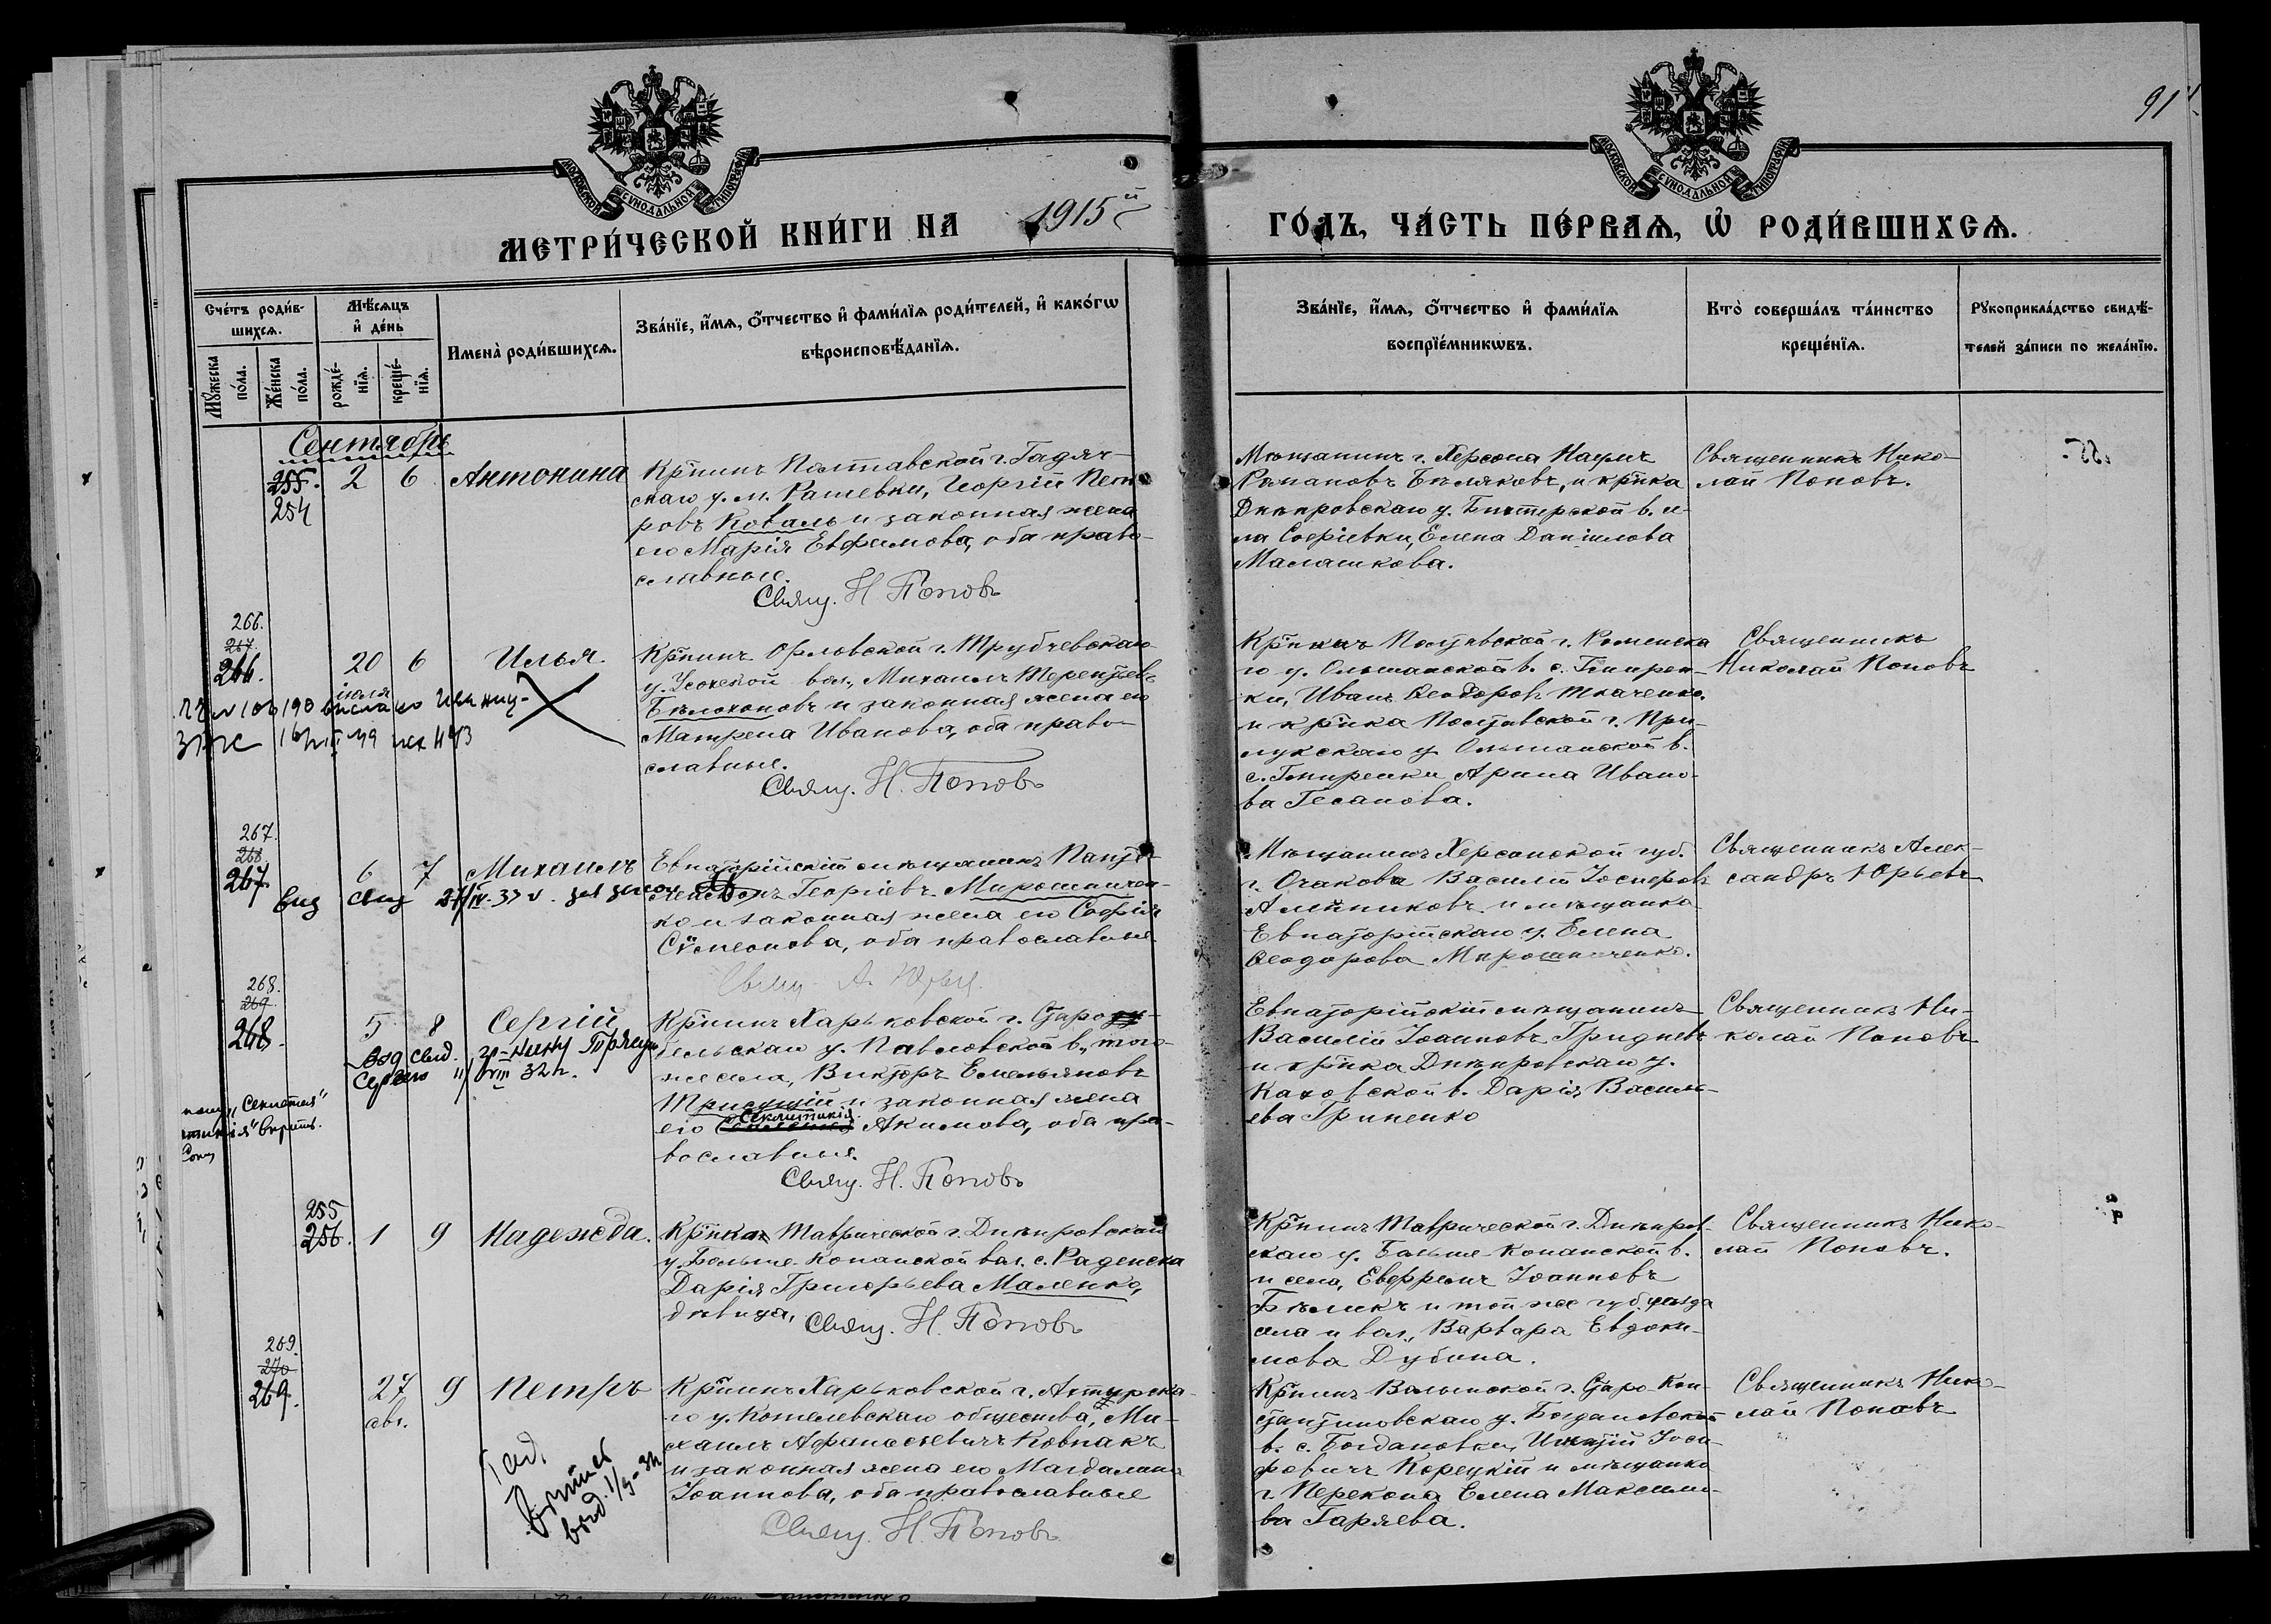 91
МОСКОВСКОЙ СѴНОДАЛЬНОЙ ТИПОГРАФІИ
МОСКОВСКОЙ СѴНОДАЛЬНОЙ ТИПОГРАФІИ
МЕТРИ́ЧЕСКОЙ КНИ́ГИ НА 1915й
ГО́ДЪ, ЧА́СТЬ ПЕ́РВАѦ, Ѡ҆ РОДИ́ВШИХСѦ.
Сче́тъ роди́в-
шихсѧ.
Мꙋ́жеска
по́ла.
Же́нска
по́ла.
Мѣ́сѧцъ
и҆ де́нь
рожде́-
нїѧ.
креще́-
нїѧ.
Имена̀ роди́вшихсѧ.
Зва́нїе, и҆́мѧ, ѻ҆́тчество и҆ фами́лїѧ роди́телей, и҆ како́гѡ
вѣроисповѣ́данїѧ.
Зва́нїе, и҆́мѧ, ѻ҆́тчество и҆ фами́лїѧ
воспрїе́мникѡвъ.
Кто̀ соверша́лъ та́инство
креще́нїѧ.
Рꙋкоприкла́дство свидѣ́-
телей за́писи по жела́нїю.
Сентябрь
255.
254
2 6 Антонина
Кр̃нинъ Полтавской г. Гадяч-
скаго у. м. Рашевки, Георгій Пет-
ровъ Коваль и законная жена
его Марія Евфимова, оба право-
славные.
Свящ. Н Поповъ
Мѣщанинъ г. Херсона Наумъ
Романовъ Бѣляковъ, и кр̃нка
Днѣпровскаго у. Бехтерской в. се-
ла Софіевки, Елена Даніилова
Малашкова.
Священникъ Нико-
лай Поповъ.
266.
267.
266.
20 6 Илья.
іюля
Кр̃нинъ Орловской г. Трубчевскаго
у. Усохской вол., Михаилъ Терентіевъ
Бѣлоконовъ и законная жена его
Матрена Иванова, оба право-
славные.
Свящ. Н. Поповъ
Кр̃нинъ Полтавской г. Роменска-
го у. Ольшанской в. с. Гнирен-
ки, Иванъ Ѳеодоровъ Ткаченко.
и кр̃нка Полтавской г. При-
лукскаго у. Ольшанской в.
с. Гниренки Арина Ивано-
ва Гесанова.
Священникъ
Николай Поповъ
267.
268
267.
6 7 Михаилъ
Евпаторійскій мѣщанинъ Панте-
леймонъ Георгіевъ Мирошничен-
ко и законная жена его Софія
Сѵмеонова, оба православные.
Свящ. А. Юрьев
Мѣщанинъ Херсонской губ.
г. Очакова Василій Іосифовъ
Алейниковъ и мѣщанка
Евпаторійскаго у. Елена
Ѳеодорова Мирошниченко.
Священникъ Алек-
сандръ Юрьевъ
268.
269.
268.
5 8 Сергій
Кр̃нинъ Харьковской г. Старо-
бельскаго у. Павловской в., того-
же села, Викторъ Емельяновъ
Трисущій и законная жена
его Секлитикія Акимова, оба пра-
вославные.
Свящ. Н. Поповъ
Евпаторійскій мѣщанинъ
Василій Іоанновъ Гридневъ
и кр̃нка Днѣпровскаго у.
Каховской в. Дарія Василь-
ева Гриненко
Священникъ Ни-
колай Поповъ
255
256.
1 9 Надежда.
Кр̃нка Таврической г. Днѣпровскаго
у. Больше-Копанской вол. с. Раденска
Дарія Григорьева Маленко,
дѣвица.
Свящ. Н. Поповъ
Кр̃нинъ Таврической г. Днѣпров-
скаго у. Больше Копанской в.
и села, Евфремъ Іоанновъ
Бѣликъ и той же губ. уѣзда
села и вол., Варвара Евдоки-
мова Дубина.
Священникъ Нико-
лай Поповъ.
269.
270
269.
27 9 Петръ
авг.
Кр̃нинъ Харьковской г. Ахтырска-
го у. Котелевскаго общества, Ми-
хаилъ Афанасьевичъ Ковпакъ
и законная жена его Магдалина
Іоаннова, оба православные
Свящ. Н. Поповъ
Кр̃нинъ Волынской г. Старо-Кон-
стантиновскаго у. Богдановской
в. с. Богдановки, Игнатій Іоси-
фовичъ Корецкій и мѣщанка
г. Перекопа Елена Максимо-
ва Гаряева.
Священникъ Нико-
лай Поповъ